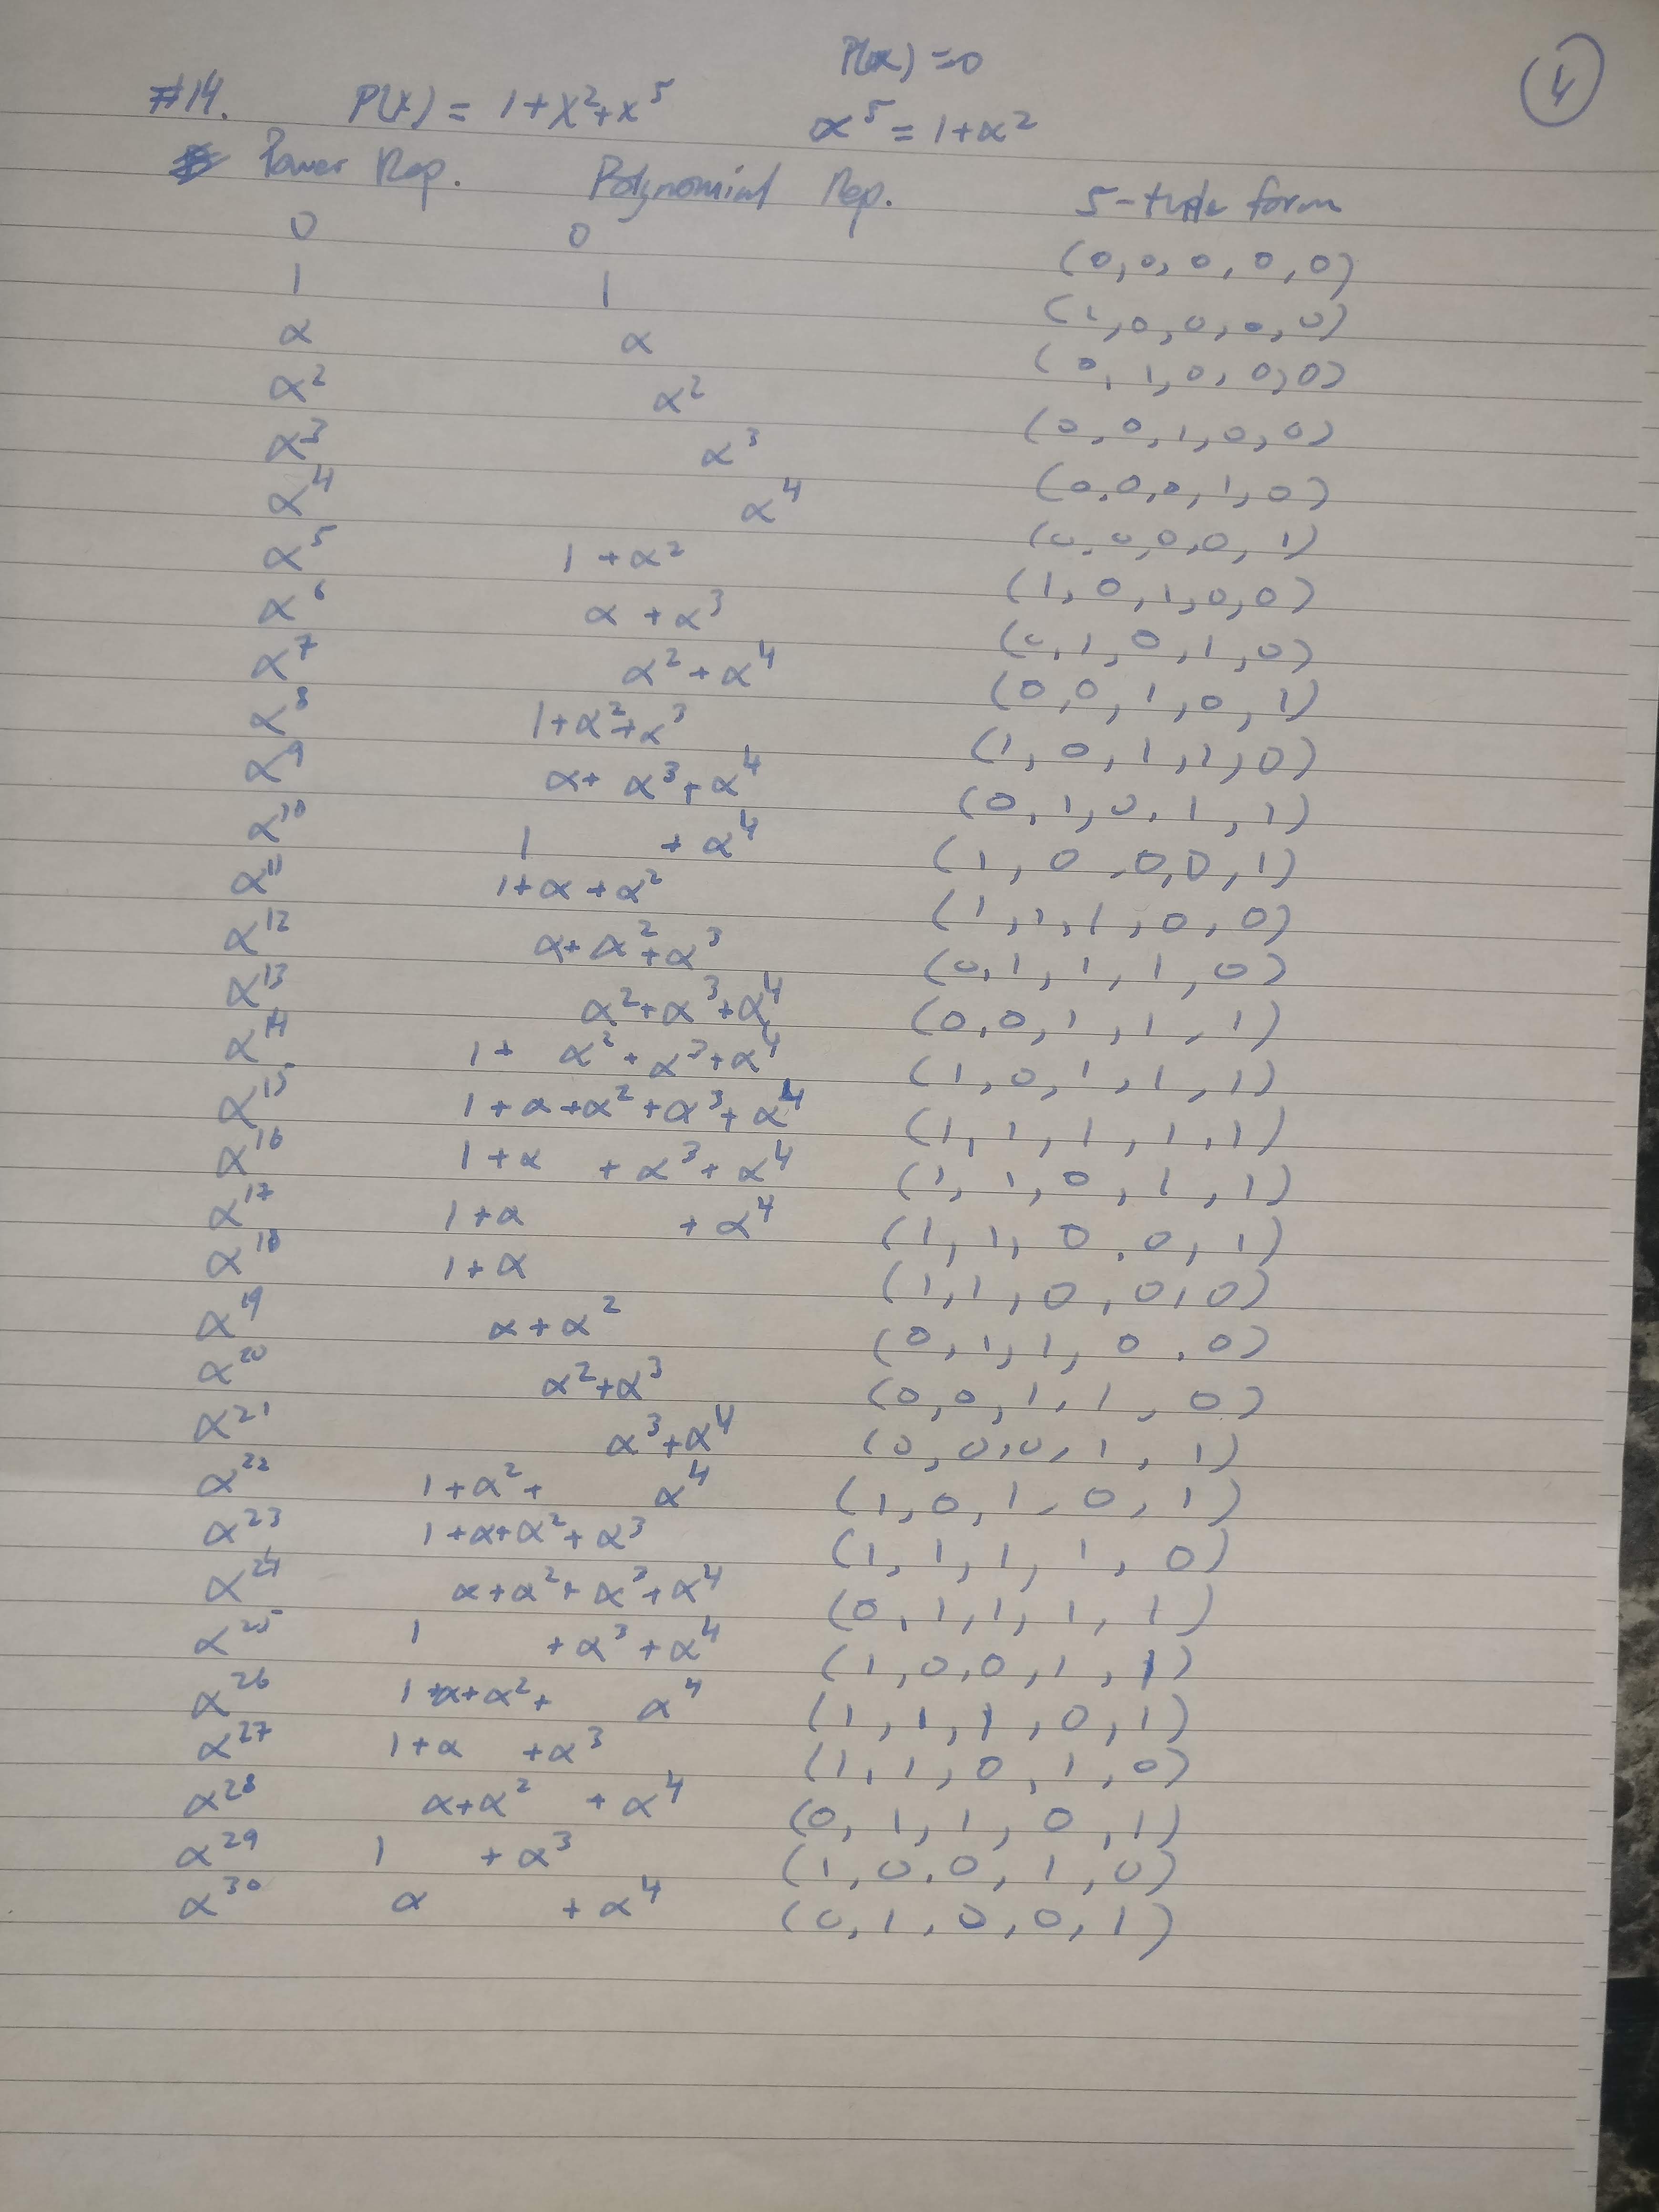 P(α) = 0
④
#14. P(x) = 1+x²+x⁵ α⁵ = 1+α²
Power Rep. Polynomial Rep. 5-tuple form
0 0 (0,0,0,0,0)
1 1 (1,0,0,0,0)
α α (0,1,0,0,0)
α² α² (0,0,1,0,0)
α³ α³ (0,0,0,1,0)
α⁴ α⁴ (0,0,0,0,1)
α⁵ 1+α² (1,0,1,0,0)
α⁶ α+α³ (0,1,0,1,0)
α⁷ α²+α⁴ (0,0,1,0,1)
α⁸ 1+α²+α³ (1,0,1,1,0)
α⁹ α+α³+α⁴ (0,1,0,1,1)
α¹⁰ 1+α⁴ (1,0,0,0,1)
α¹¹ 1+α+α² (1,1,1,0,0)
α¹² α+α²+α³ (0,1,1,1,0)
α¹³ α²+α³+α⁴ (0,0,1,1,1)
α¹⁴ 1+α²+α³+α⁴ (1,0,1,1,1)
α¹⁵ 1+α+α²+α³+α⁴ (1,1,1,1,1)
α¹⁶ 1+α+α³+α⁴ (1,1,0,1,1)
α¹⁷ 1+α+α⁴ (1,1,0,0,1)
α¹⁸ 1+α (1,1,0,0,0)
α¹⁹ α+α² (0,1,1,0,0)
α²⁰ α²+α³ (0,0,1,1,0)
α²¹ α³+α⁴ (0,0,0,1,1)
α²² 1+α²+α⁴ (1,0,1,0,1)
α²³ 1+α+α²+α³ (1,1,1,1,0)
α²⁴ α+α²+α³+α⁴ (0,1,1,1,1)
α²⁵ 1+α³+α⁴ (1,0,0,1,1)
α²⁶ 1+α+α²+α⁴ (1,1,1,0,1)
α²⁷ 1+α+α³ (1,1,0,1,0)
α²⁸ α+α²+α⁴ (0,1,1,0,1)
α²⁹ 1+α³ (1,0,0,1,0)
α³⁰ α+α⁴ (0,1,0,0,1)